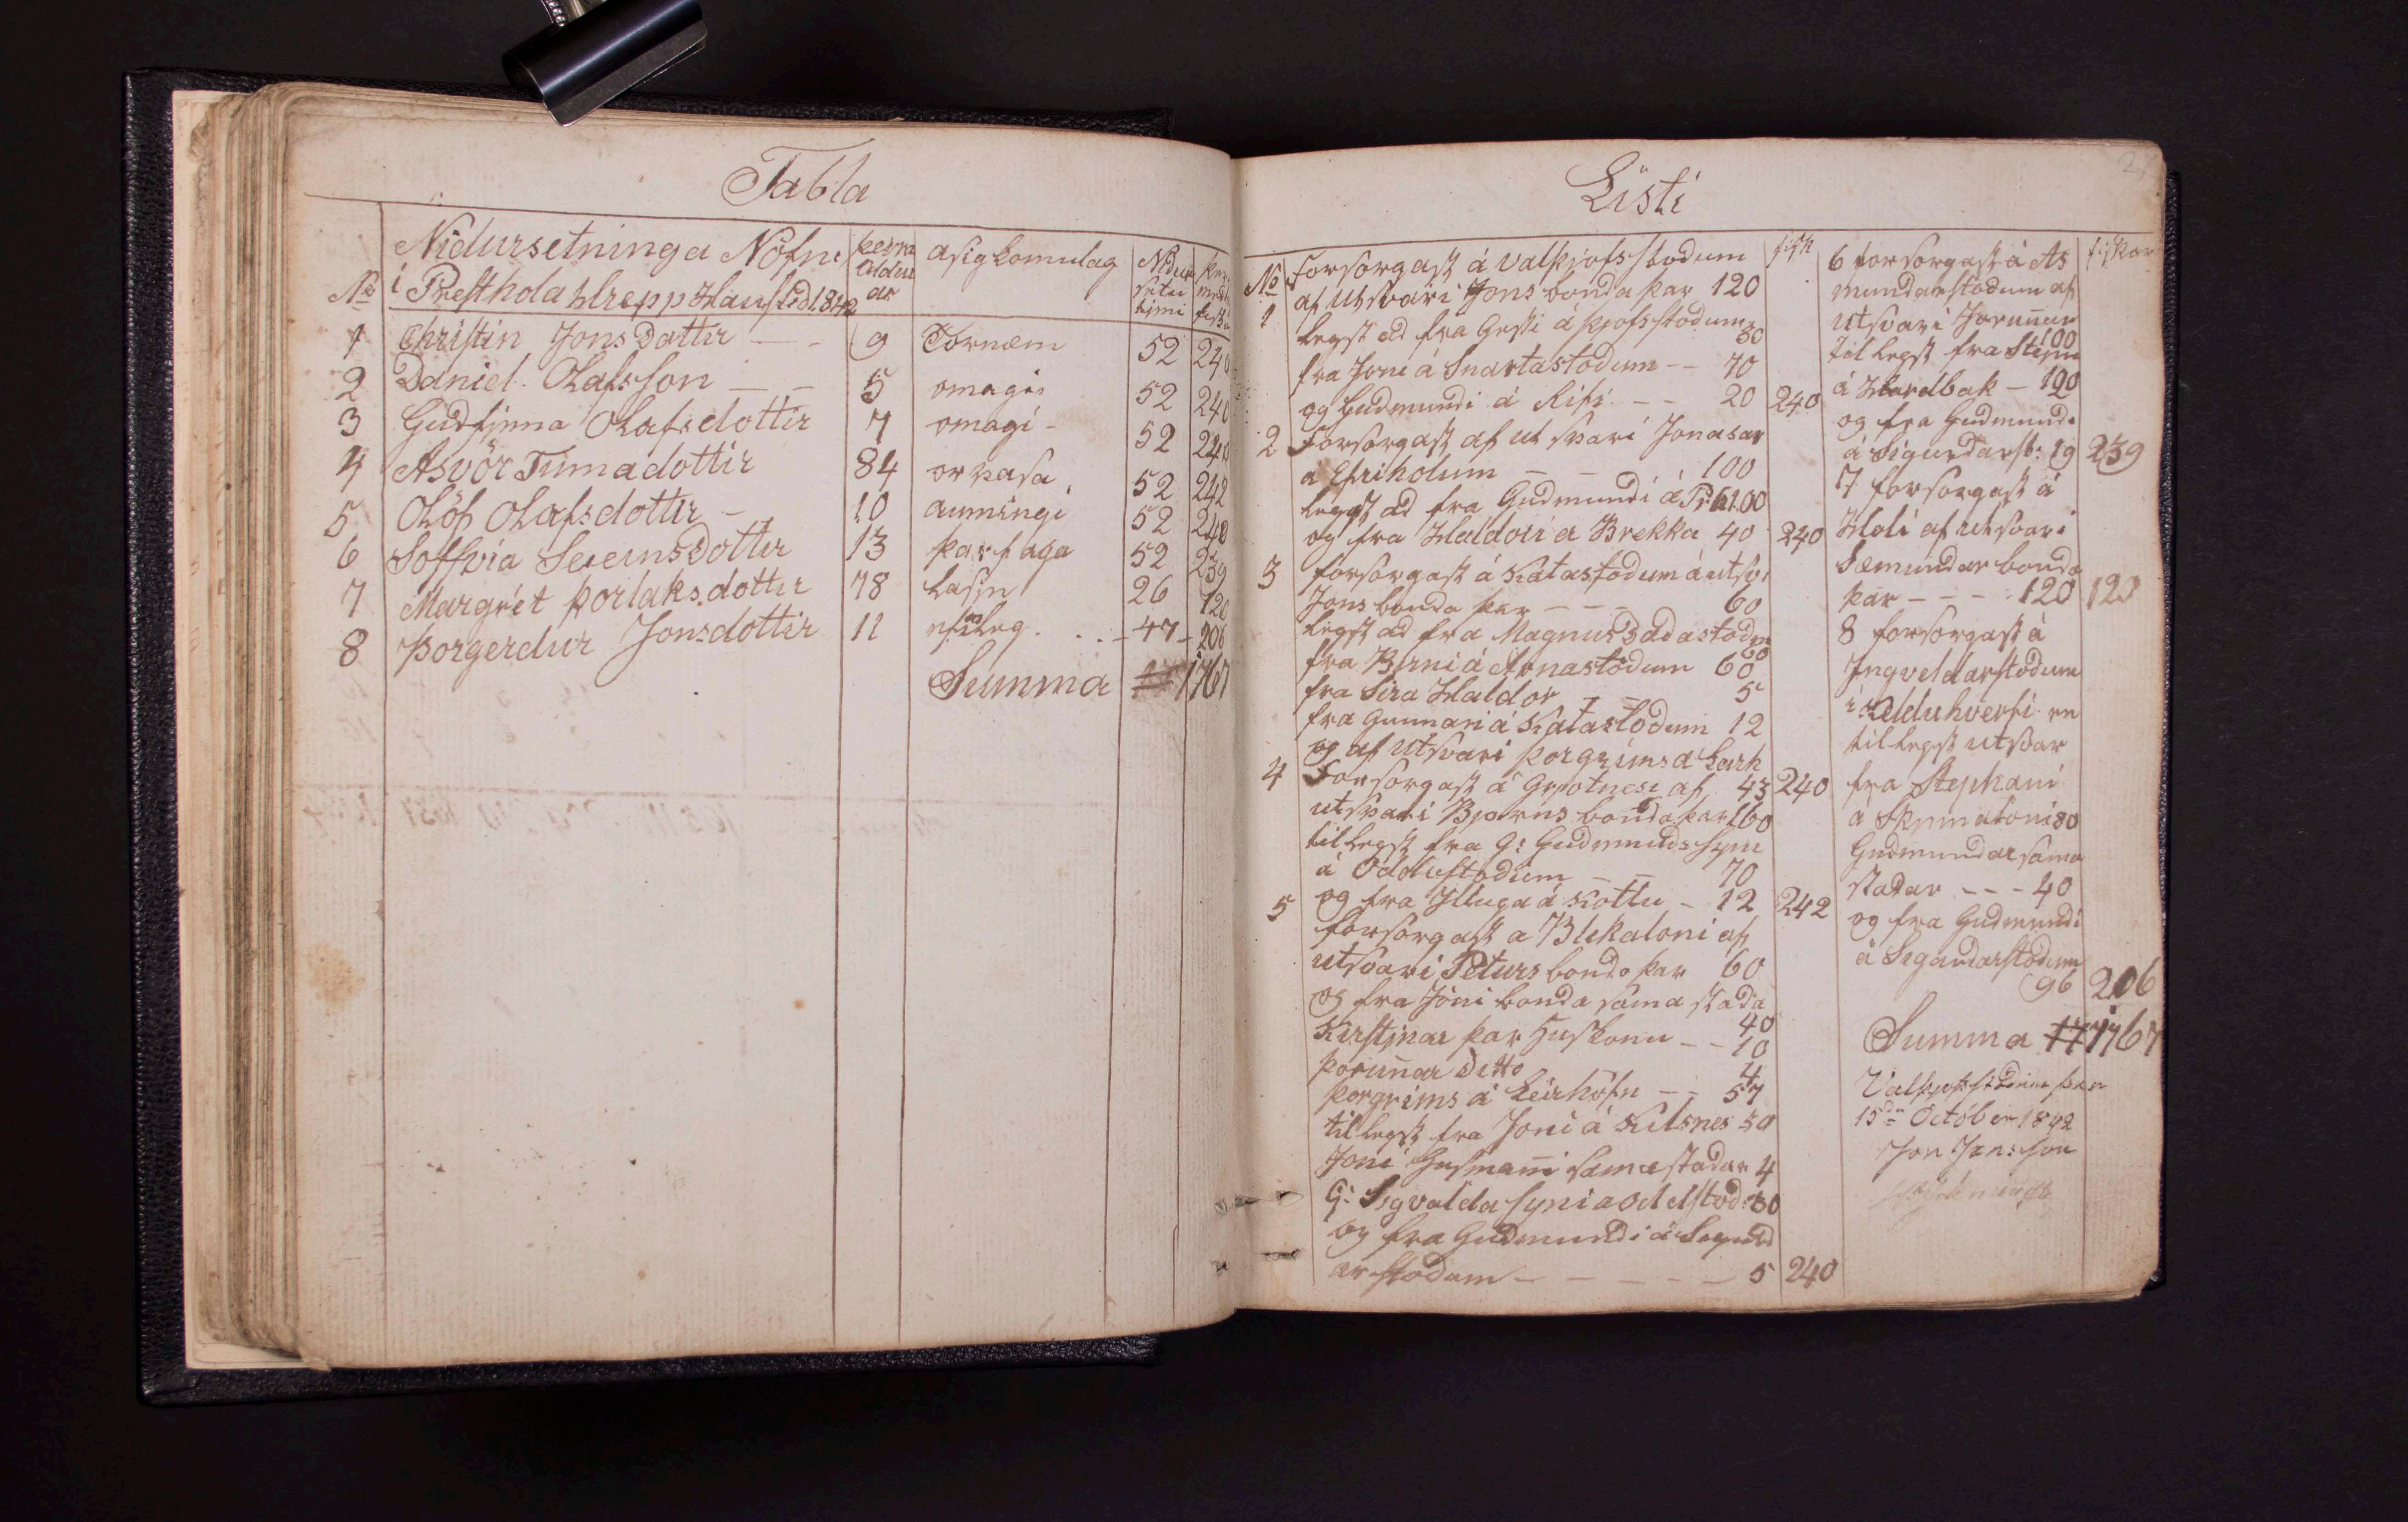 Tabla
No
Nidursetninga Nöfn
i Presthola hrepp Haustid 1842
þeirra
aldur
ár
asigkomulag
Nidur
setu
timi
1 Christin Jons Dottir - - 9 Tornæm 52 240
2 Daniel Olafsson - - 5 omagi 52 240
3 Gudfinna Olafsdottir 7 omagi - 52 240
4 Asvör Tumadottir 84 orvasa 52 242
5 Olöf Olafsdottir - 10 aumingi 52 240
6 Soffvia Seiemsdottir 13 þarfaga 52 239
7 Margrét þorlaksdottir 78 lasin 26 120
8 Þorgerdur Jonsdottir 11 47 - 206
Summa 1767
Listi
27
No
1 Forsorgast á Valþjofsstodum fisk
af utsvari Jons bonda þar 120
legst ad fra Gesti á þjofsstodum
30
fra Joni á Snartastodum - - 70
og Gudmundi á Rifi - - 20 240
2 Forsorgast af utsvari Jonasar
a Efriholum - - 100
legst ad fra Gudmundi á Prh 100
og fra Haldori a Brekka 40 240
3 forsorgast á Katastodum á utsv:
Jons bonda þar - - - 60
legst ad fra Magnus Dadastodm
60
fra Birni á Arnastodum 60
fra Sira Haldor - - 5
fra Gunnari á Katastodum 12
og af utsvari þorgrims a Leirh
43 240
4 Forsorgast á Grjotnesi af
utsvari Bjorns bonda þar 160
tillegst fra G: Gudmundssyni
á Oddstodum - - 70
og fra Illuga á Kottu - 12 242
5 forsorgast a Blikaloni af
utsvari Peturs bonda þar 60
og fra Joni bonda sama stada
40
Kirstinar þar Huskonu - - 10
þorunnar Ditto 4
þorgrims á Leirhöfn - - 57
tillegst fra Joni á Kilsnes 30
Joni Husmanni samastadar 4
G: Sigvaldasyni a Oddstod: 30
og fra Gudmundi á Sigurd
arstodum - - - - - 5 240
6 forsorgast á As fiskar
mundarstodum af
utsvari Jorunnar
100
tillegst fra Steini
á Hardbak - 120
og fra Gudmundi
á Sigurdarst: 19 239
7 forsorgast á
Holi af utsvari
Sæmundar bonda
þar - - - 120 120
8 forsorgast á
Ingveldarstodum
i Kelduhverfi en
tillegst utsvar
fra Stephani
á Skinnaloni 80
Gudmundar sama
stadar - - - 40
og fra Gudmundi
á Sigurdarstodum
96 206
Summa 1767
Valþjofsstodum þan
15da October 1842
Jon Jonsson